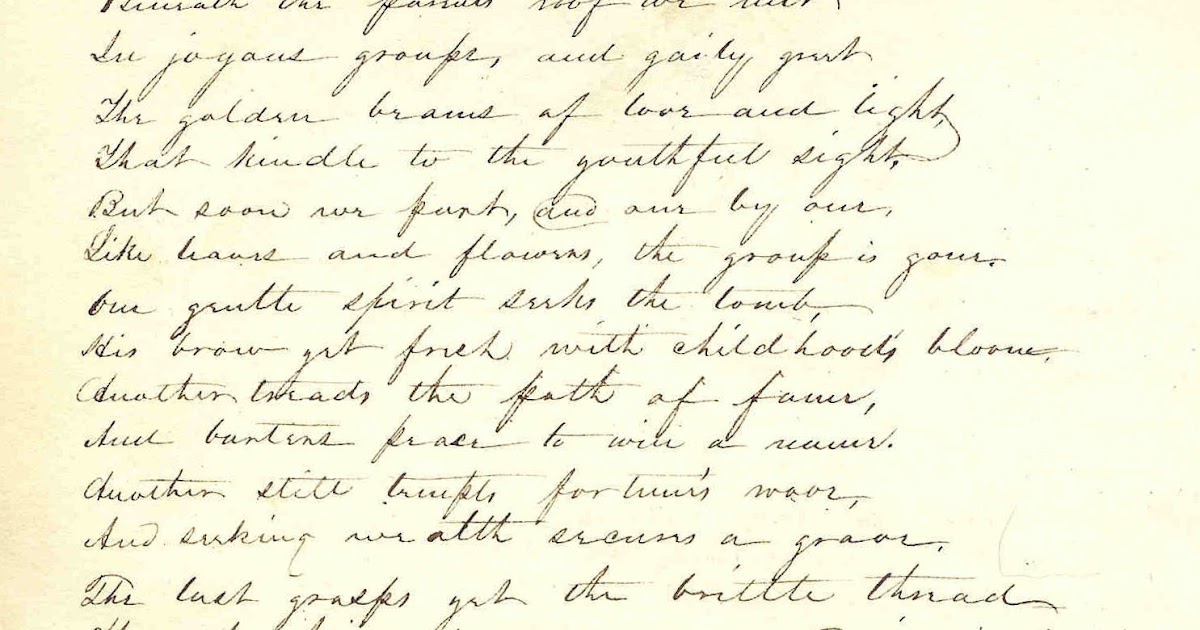 Beneath the parents roof we meet
In joyous groups, and gaily greet
The golden beams of love and light,
That kindle to the youthful sight,
But soon we part, and one by one,
Like leaves and flowers, the group is gone.
One gentle spirit seeks the tomb,
His brow yet fresh with childhood's bloom,
Another treads the path of fame,
And barters peace to win a name.
Another still tempts fortune's wave,
And seeking wealth secures a grave.
The last grasps yet the brittle thread